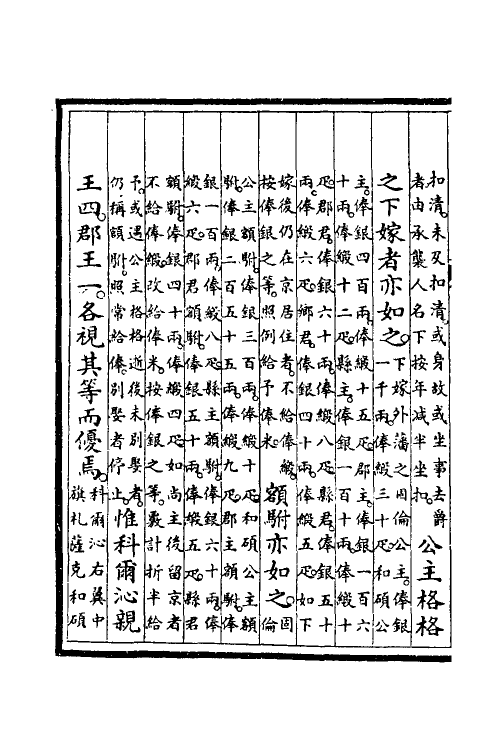 扣清。未及扣清。或身故或坐事去爵
者由承襲人名下按年减半坐扣。
公主格格
之下嫁者亦如之。
下嫁外藩之固倫公主。俸銀
一千兩。俸緞三十疋。和碩公
主。俸銀四百兩。俸緞十五疋。郡主。俸銀一百六
十兩。俸緞十二疋。縣主。俸銀一百十兩。俸緞十
疋。郡君。俸銀六十兩。俸緞八疋。縣君。俸銀五十
兩。俸緞六疋。鄉君。俸銀四十兩。俸緞五疋。如下
嫁後仍在京居住者。不給俸緞。
按俸銀之等。照例給予俸米。
額駙亦如之。
固
倫
公主額駙。俸銀三百兩。俸緞十疋。和碩公主額
駙。俸銀二百五十五兩。俸緞九疋。郡主額駙。俸
銀一百兩。俸緞八疋。縣主額駙。俸銀六十兩。俸
緞六疋。郡君額駙。俸銀五十兩。俸緞五疋。縣君
額駙。俸銀四十兩。俸緞四疋。如尚主後留京者
不給俸緞。改給俸米。按俸銀之等。數計折半給
予。或遇公主格格逝後未別娶者。
仍稱額駙。照常給俸。別娶者停止。
惟科爾沁親
王四郡王一。各視其等而優焉。
科爾沁右翼中
旗札薩克和碩